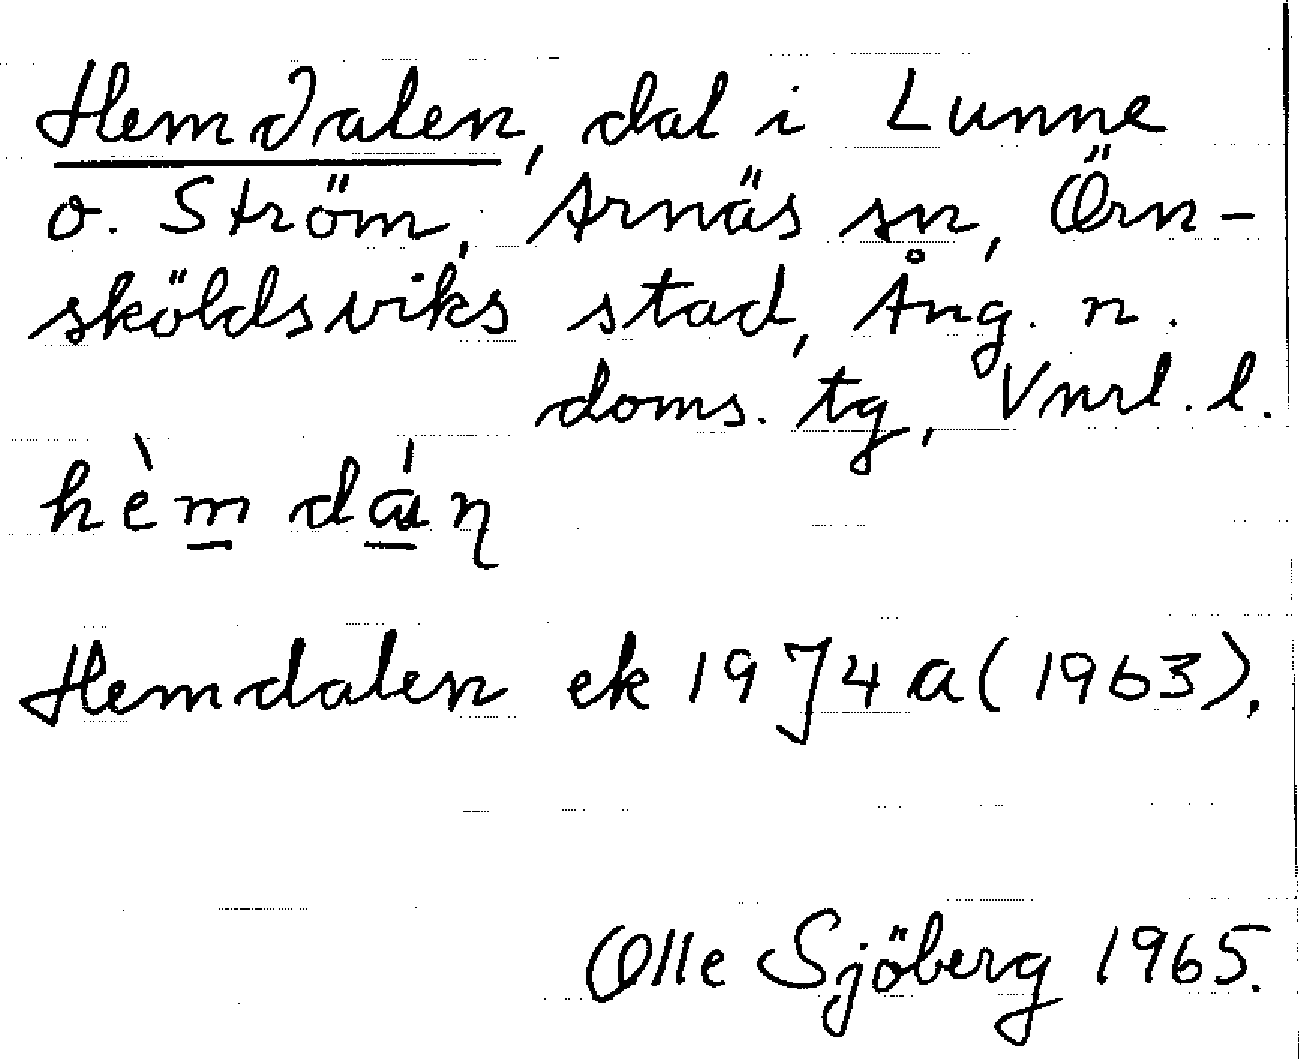 Hemdalen, dal i Lunne
o. Ström, Arnäs sn, Örn-
sköldsviks stad, Ång. n.
doms. tg, Vnrl. l.
hèm dán
Hemdalen ek 19 J4 a (1963).
Olle Sjöberg 1965.